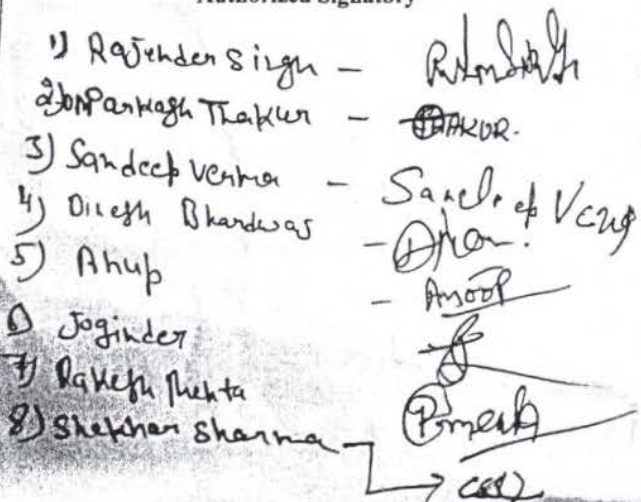 Authorized Signatory
1) Rajender Singh -
2) Om Parkash Thakur - THAKUR.
3) Sandeep Verma - Sandeep Verma
4) Dinesh Bhardwaj -
5) Anup - Anoop
6) Joginder
7) Rakesh Mehta
8) Shekhar Sharma